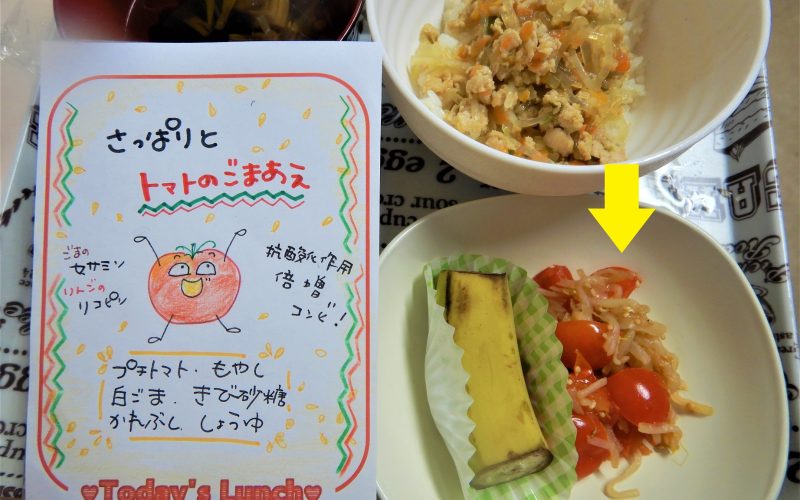 さっぱりと
トマトのごまあえ
ごまの
セサミン
りんごの
リコピン
抗酸化作用
倍増
コンビ!
プチトマト・もやし
白ごま・きび砂糖
かれぶし しょうゆ
♥Today's Lunch♥
2 egg
cup
sour cre